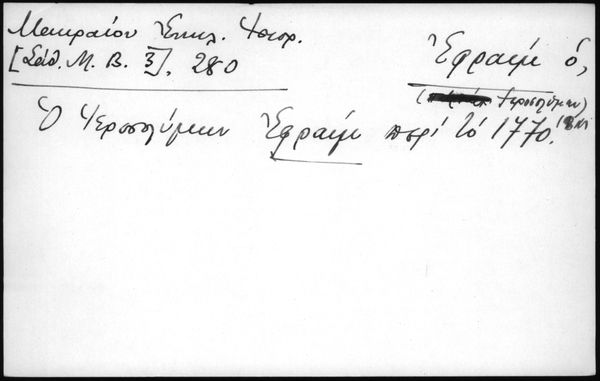 Μακραίου Ἐκκλ. Ἱστορ.
[Σάθ. Μ. Β. 3], 280
Ἐφραὶμ ὁ,
(Ἱεροσολύμων)
Ὁ Ἱεροσολύμων Ἐφραὶμ περὶ τὸ 1770.